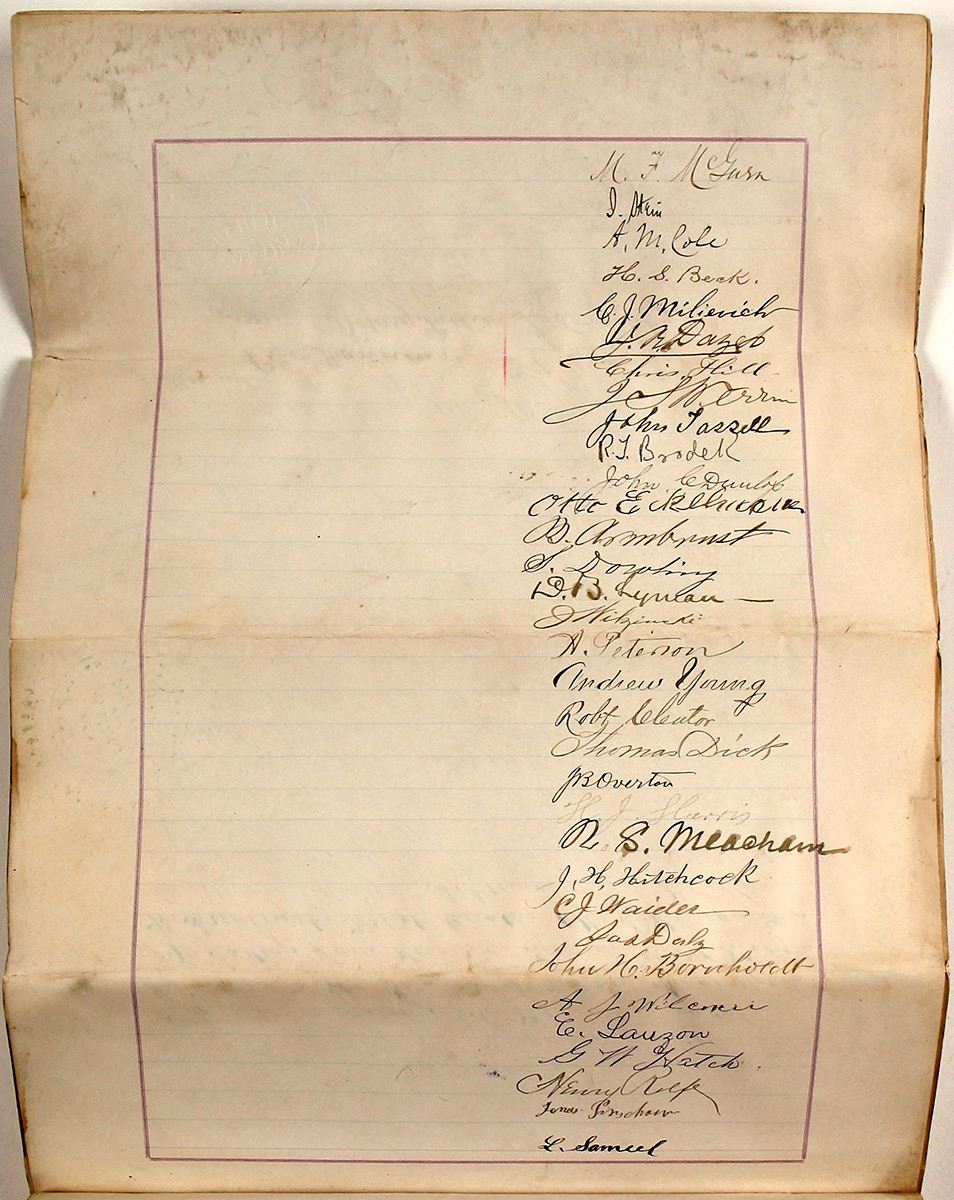 M. F. McGurn
I. Stein
A. M. Cole
H. S. Beck.
C. J. Milievich
J. R. Dazet
Chris. Hill
J S
John Tassell
R. J. Brodek
John C Dunlop
Otto
B. Armbrust
S. Dowling
D. B. Lyman —
J Wilzinski
A. Peterson
Andrew Young
Robt Cleator
Thomas Dick
JB Overton
H J Harris
R. S. Meacham
J. H. Hitchcock
CJ Waider
Jas Daly
John H. Bornholdt
A J
E. Lauzon
G W Hatch.
Henry Rolfe
Jonas
L. Samuel